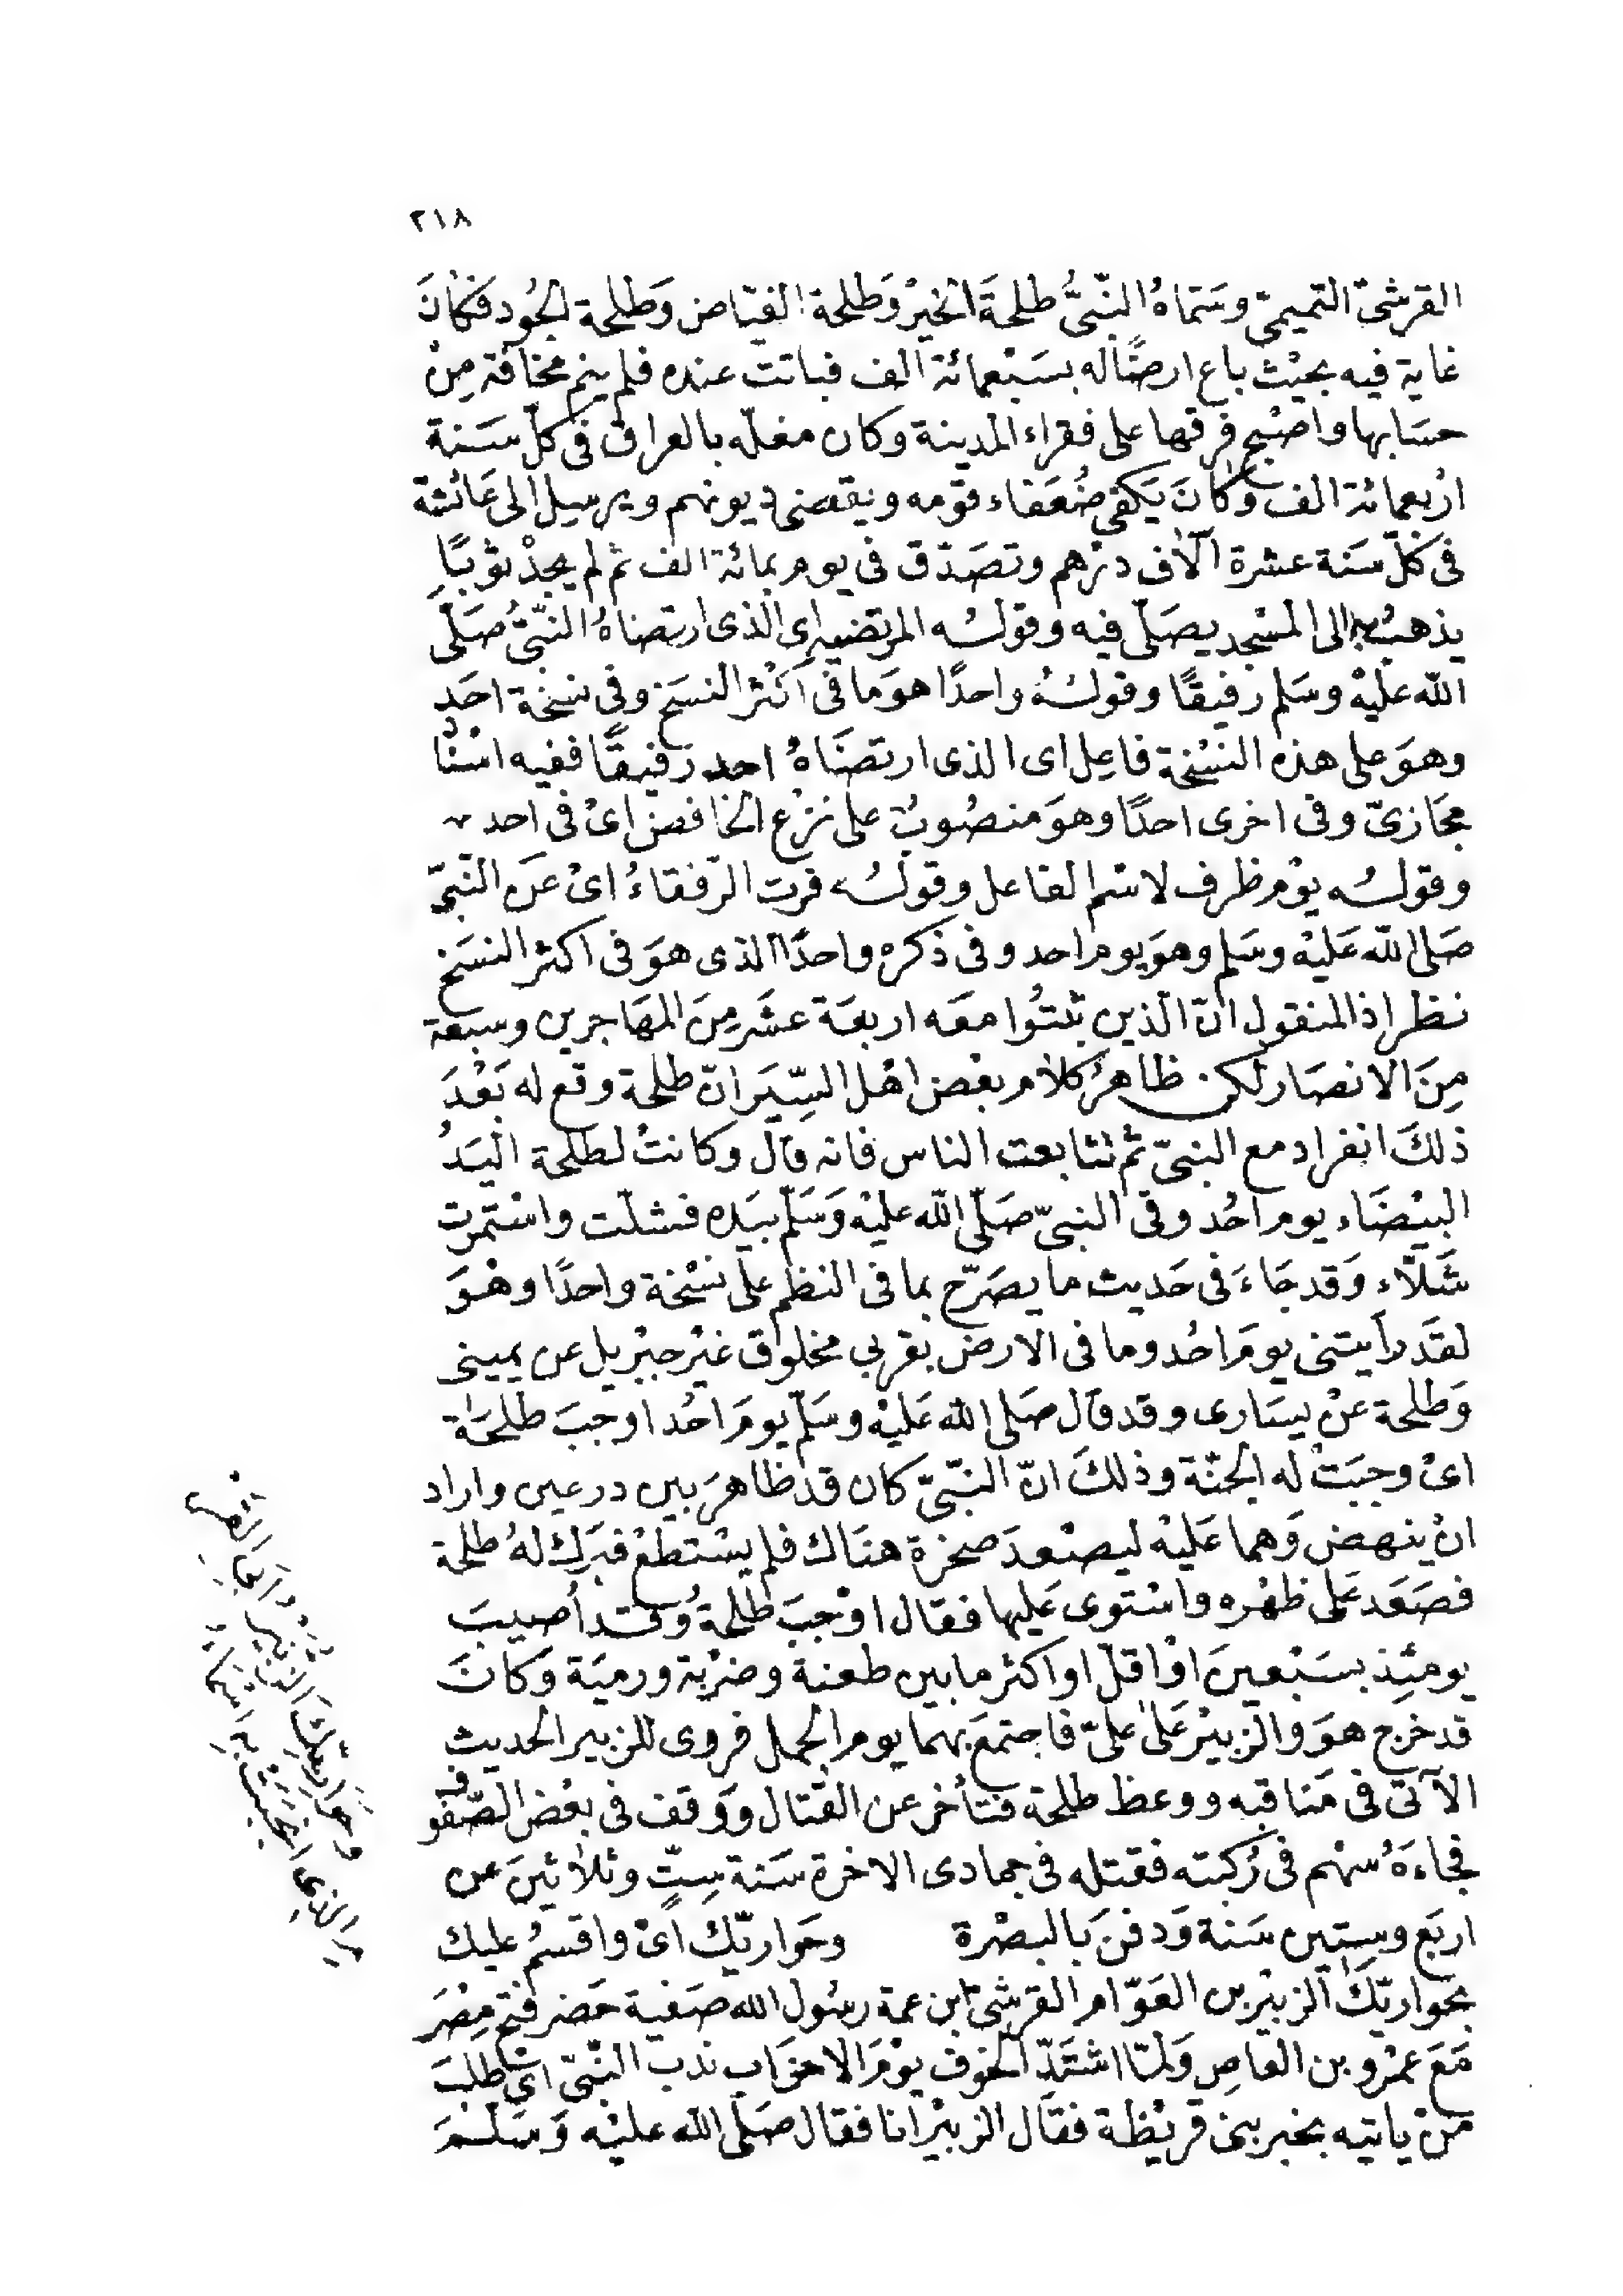 ٢١٨
القرشىّ التميمىّ وسَمّاهُ النّبىُّ طلحَةَ الخَيرْ وَطلحة الفيّاض وَطلحة الجُود فكَانَ
غاية فيه بحَيْث باع ارضًا له بسَبْعمائة الف فباتت عنده فلم ينم مخافة مِنْ
حسَابها واصْبح فرقها على فقراء المدينة وكان مغلّه بالعراق فى كلّ سَنة
ارْبعمائة الف وكانَ يَكفى ضُعَفاء قوّمه ويقضى ديونهم ويرسِل الى عَائشة
فى كلّ سَنة عشرة آلاف درْهم وتصَدّق فى يوم بمائة الف ثم لم يجدْ ثوْبًا
يذهبُ به الى المسْجد يصَلّى فيه وقولـُه المرتضيه اى الذى ارتضاهُ النّبىُّ صَلّى
الله علَيْهْ وسَلم رَفيقًا وقولـُهُ واحدًا هوَ ما فى اكثر النسَخ وفى نسخة احَد
وهوَ على هذه النسْخة فاعِل اى الذى ارتضَاهُ احد رَفيقًا ففيه اسْنادٌ
مجَازىّ وفى اخرى احدًا وهوَ منصُوبٌ على نزْع الخافض اىْ فى احد
وقولـُه يوْم ظرف لاسْم الفاعل وقولـُه فرّت الرّفقاءُ اىْ عَن النّبىّ
صَلى الله عَليْه وسَلم وهوَ يوم احد وفى ذكره واحدًا الذى هوَ فى اكثر النسَخ
نظر اذ المنقول انّ الّذين ثبتُوا معَه اربعَة عشَر مِنَ المهَاجرين وسبعَة
مِنَ الانصَار لكن ظاهرُ كلام بعْض اهْل السِّيَر انّ طلحة وقع له بَعْدَ
ذلكَ انفراد مع النبىّ ثم تتابعت الناس فانه قال وكانتْ لطلحة اليَدُ
البيْضَاء يوم احُد وقى النبىّ صَلّى الله عليْه وَسَلّم بيَده فشلّت واسْتمرت
شَلّاء وَقد جَاءَ فى حَديث ما يصَرّح بما فى النظم على نسْخة واحدًا وهْوَ
لقَدْ رأيتنى يومَ احُد وما فى الارض بقربى مخلوق غيْر جبْريل عن يمينى
وَطلحة عنْ يسَارى وقد قال صَلى الله عَليْه وسَلّم يومَ احُد اوجبَ طلحَة
اىْ وجبَتْ له الجنّة وذلكَ انّ النّبىّ كان قد ظاهرَ بين درعين واراد
انْ ينهض وَهما عَليْه ليصْعدَ صخرة هنَاك فلم يسْتطعْ فبَرك لهُ طلحة
فصَعَد عَلى ظهْره واسْتوى عَليها فقال اوْجبَ طلحةُ وقد أُصيبَ
يومئِذ بسَبْعينَ اوْ اقلّ او اكثر ما بين طعنة وضرْبة ورميَة وَكانَ
قد خرج هوَ والزبيْر عَلى علىّ فاجتمعَ بهما يوم الجمل فروى للزبير الحديث
الآتى فى مَناقبه ووعظ طلحة فتأخر عن القتال ووَقف فى بعْض الصّفوف
فجاءَهُ سهْم فى رُكبته فقتله فى جمادى الاخرة سَنة سِتٍّ وثلاثينَ عن
اربَع وسِتين سَنة وَدفنَ بَالبصْرة وحَواريّك اىْ واقسمُ عليك
بحَواريّكَ الزبيْر بن العَوّام القرشىّ ابن عمة رسُول الله صَفية حَضر فتح مِصْرَ
مَعَ عمْرو بن العاصِ وَلمّا اشتَدّ الخوف يوْمَ الاحزَاب ندبَ النّبىّ اىْ طلبَ
مَنْ ياتيه بخبر بنى قريْظة فقاَل الزبيْر انا فقال صَلّى الله عليْه وَسَلـمَ
وحَوَاريّكَ الزّبَيْر أبى القرم
الذى انجبَتْ به اسْمَاء